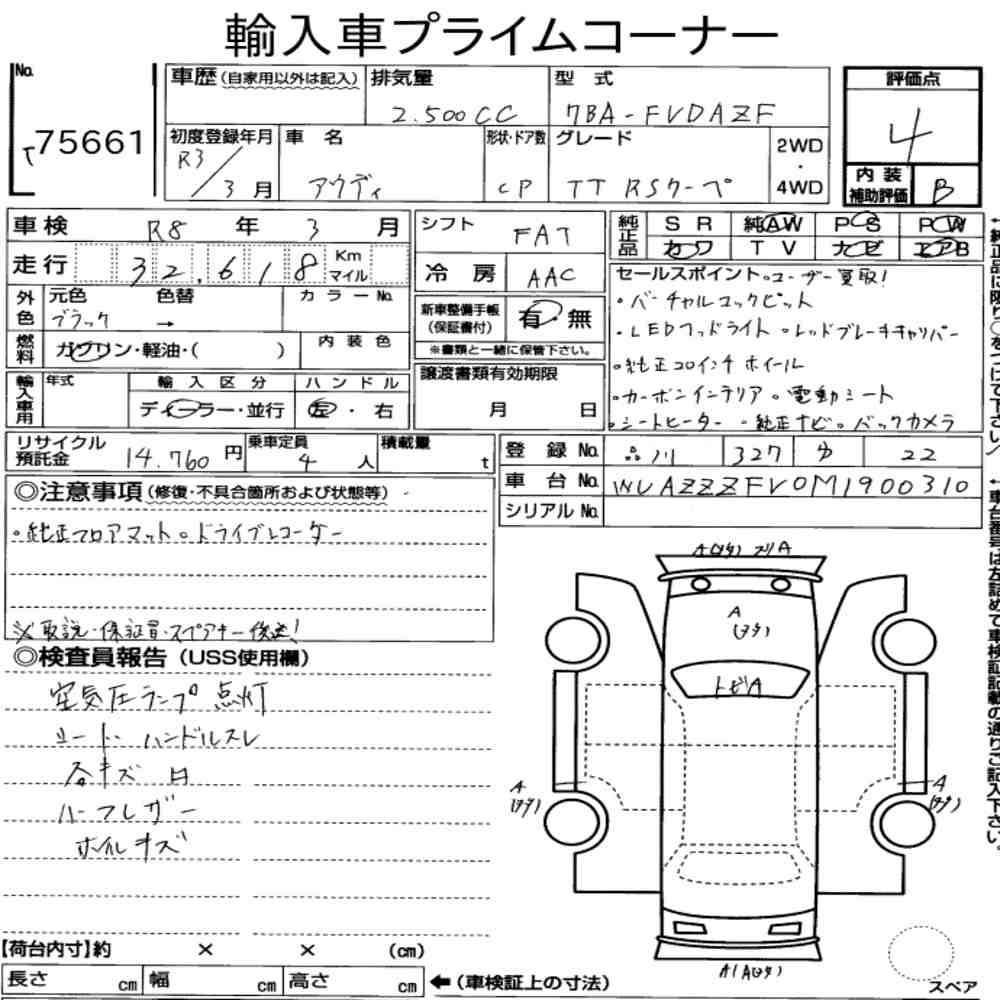 輸入車プライムコーナー
No.
75661
車歴 (自家用以外は記入)
排気量
2.500CC
型式
7BA-FVDAZF
評価点
4
初度登録年月
R3/3月
車名
アウディ
形状・ドア数
CP
グレード
TT RSクーペ
2WD
・
4WD
内装
補助評価
B
車検 R8 年 3 月
シフト
FAT
純正品
SR 純AW PS PW
カワ TV ナビ エアB
走行 32,618 Km マイル
冷房 AAC
セールスポイント。ユーザー買取!
・バーチャルコックピット
・LEDヘッドライト 。レッドブレーキキャリパー
。純正20インチホイール
。カーボンインテリア 。電動シート
。シートヒーター ・純正ナビ 。バックカメラ
外色
元色
ブラック
色替
→
カラーNo.
新車整備手帳
(保証書付)
有・無
※書類と一緒に保管下さい。
燃料
ガソリン・軽油・( )
内装色
輸入車用
年式
輸入区分
ディーラー・並行
ハンドル
左・右
譲渡書類有効期限
月 日
リサイクル
預託金
14.760円
乗車定員
4 人
積載量
t
登録No. 品川 327 ゆ 22
車台No. WUAZZZFV0M1900310
シリアルNo.
◎注意事項 (修復・不具合箇所および状態等)
。純正フロアマット 。ドライブレコーダー
※取説・保証書・スペアキー後送!
◎検査員報告 (USS使用欄)
空気圧ランプ点灯
シート・ハンドルスレ
各キズ 凹
ハーフレザー
ホイルキズ
A(タタ) ズリA
A
(タタ)
トビA
A
(タタ)
A
(タタ)
A1A(タタ)
スペア
【荷台内寸】約 × × (cm)
長さ cm 幅 cm 高さ cm
←(車検証上の寸法)
←純正品に限り○をつけて下さい/
←車台番号は左詰めで車検証記載の通りご記入下さい。